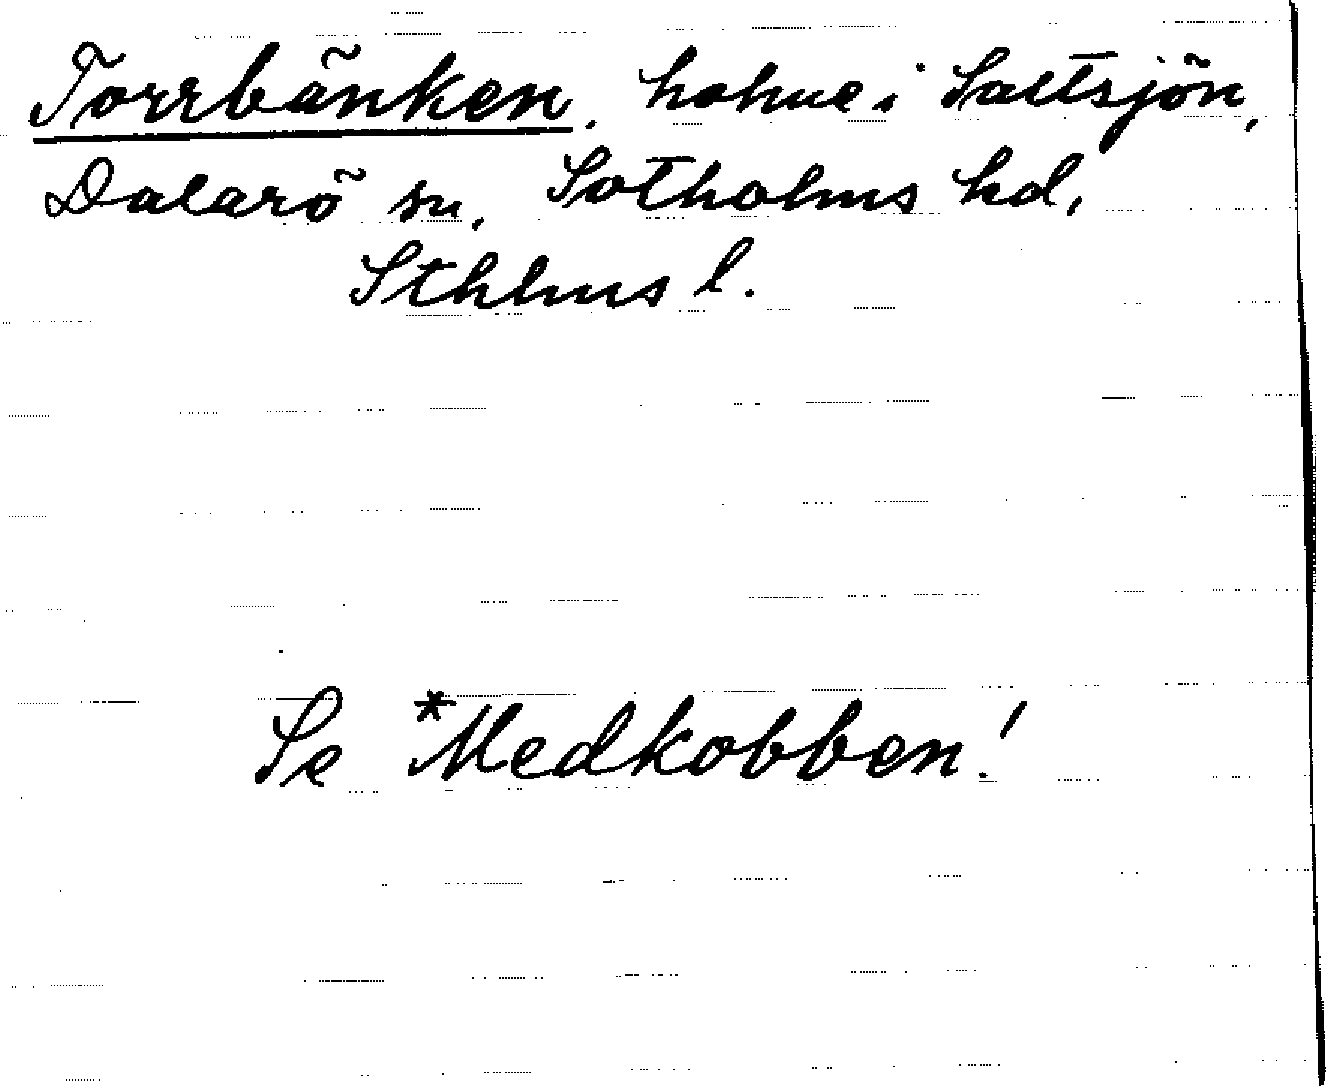 Torrbänken. holme i Saltsjön,
Dalarö sn, Sotholms hd,
Sthlms l.
Se *Medkobben!